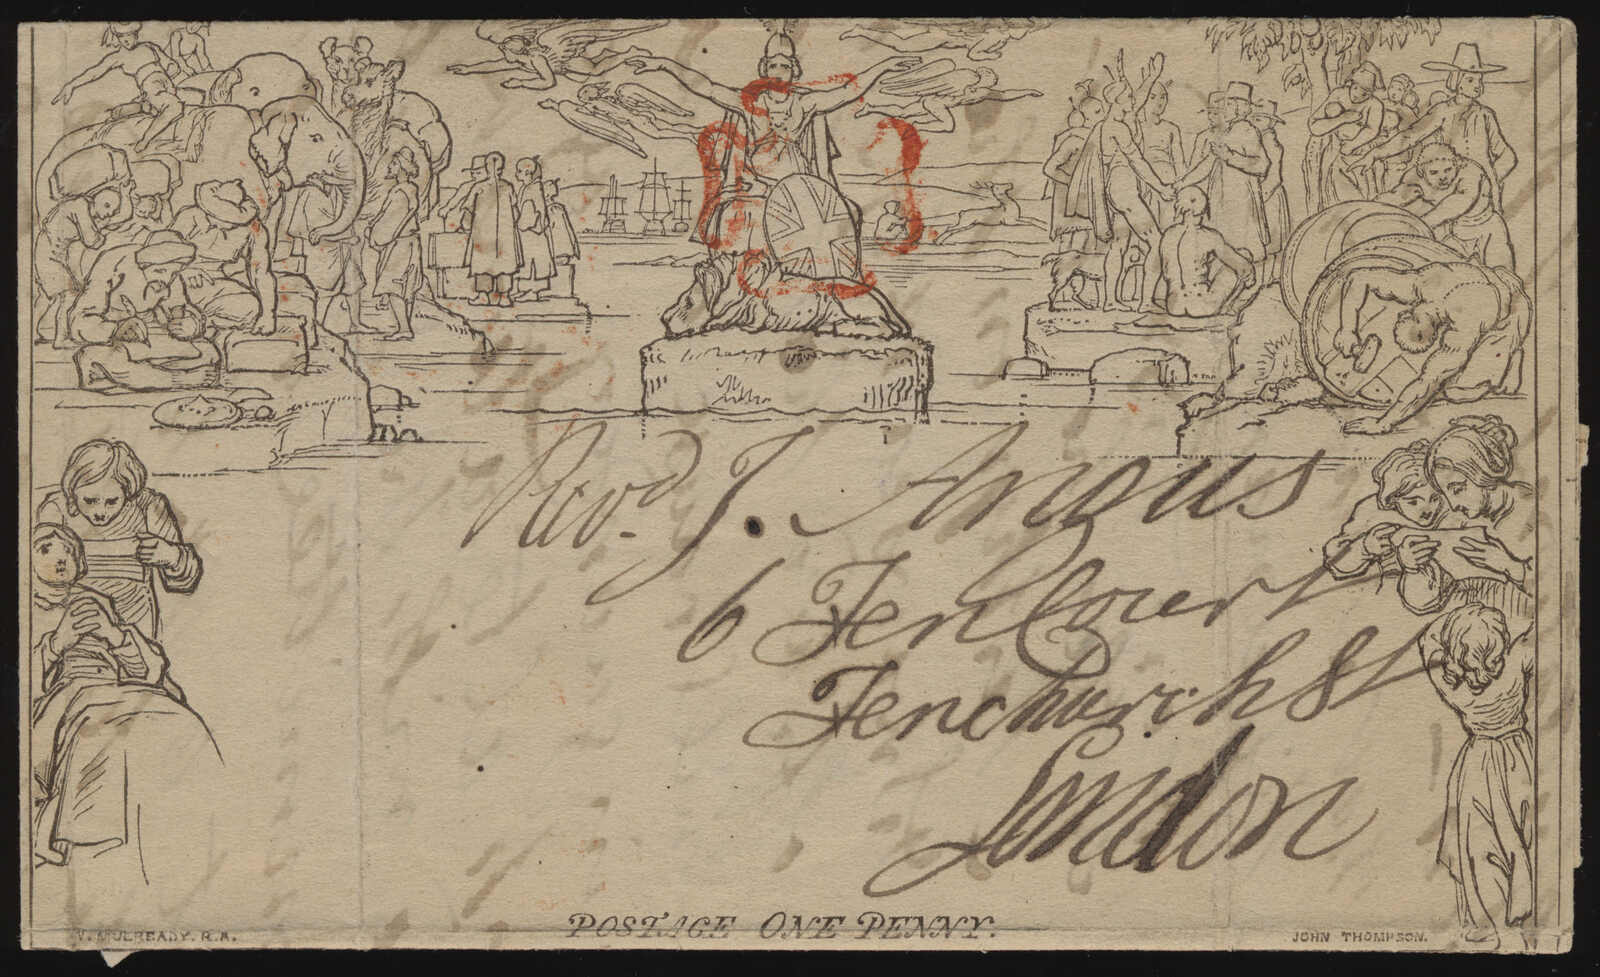 Revd. J. Angus
6 Fen Court
Fenchurch St
London
POSTAGE ONE PENNY.
W. MULREADY. R.A.
JOHN THOMPSON.